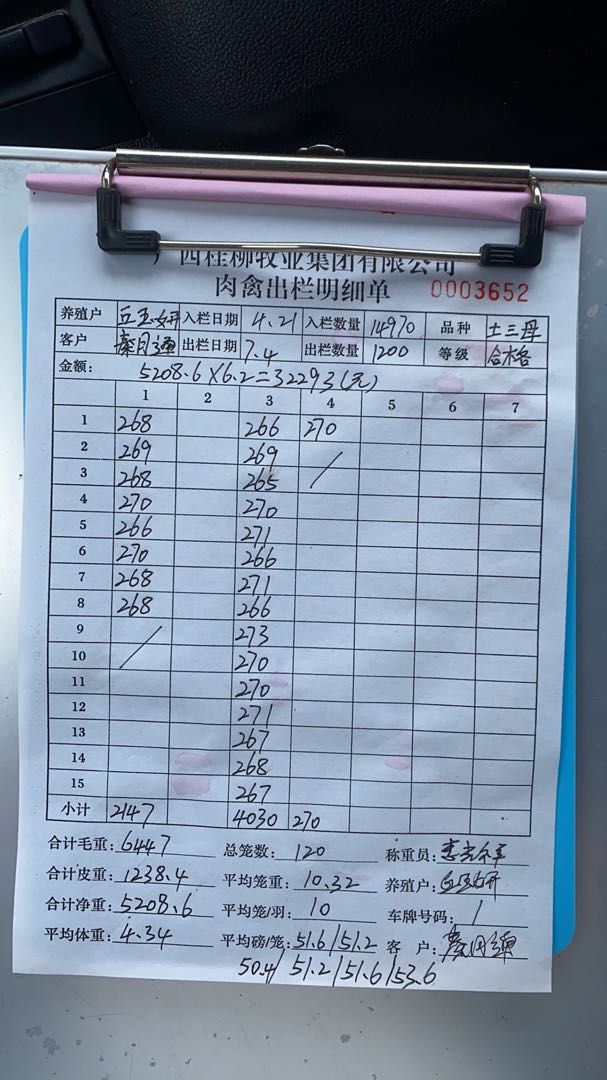 西桂柳牧业集团有限公司
肉禽出栏明细单 0003652
养殖户 丘玉妍 入栏日期 4.21 入栏数量 14970 品种 土三母
客户 出栏日期 7.4 出栏数量 1200 等级 合格
金额: 5208.6×6.2=32293(元)
1 2 3 4 5 6 7
1 268 266 270
2 269 269 /
3 268 265
4 270 270
5 266 271
6 270 266
7 268 271
8 268 266
9 / 273
10 270
11 270
12 271
13 267
14 268
15 267
小计 2147 4030 270
合计毛重: 6447 总笼数: 120 称重员:
合计皮重: 1238.4 平均笼重: 10.32 养殖户:
合计净重: 5208.6 平均笼/羽: 10 车牌号码: /
平均体重: 4.34 平均磅/笼: 51.6/51.2 客户:
50.4/51.2/51.6/53.6